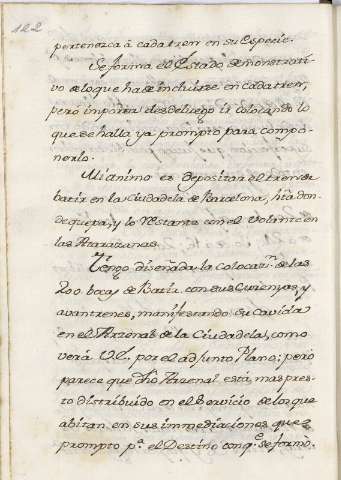 122
pertenezca á cada tren en su Especie.
Se forma el Estado demonstrati
vo de lo que ha de incluirse en cada tren,
pero importa desde luego ir colocando lo
que se halla ya prompto para compo-
nerlo.
Mi animo es depositar el tren de
batir en la Ciudadela de Barcelona, hta don
de quepa, y lo restante con el volante en
las Atarazanas.
Tengo diseñada la colocaon de las
200 bocas de Batir con sus Cureñas, y
avantrenes, manifestando su cavida
en el Arzenal de la Ciudadela, como
verá VE. por el adjunto Plano; pero
parece que dho Arzenal está mas pres-
to distribuido en el servicio de los que
abitan en sus immediaciones que
prompto pa el Destino con qe se formó.